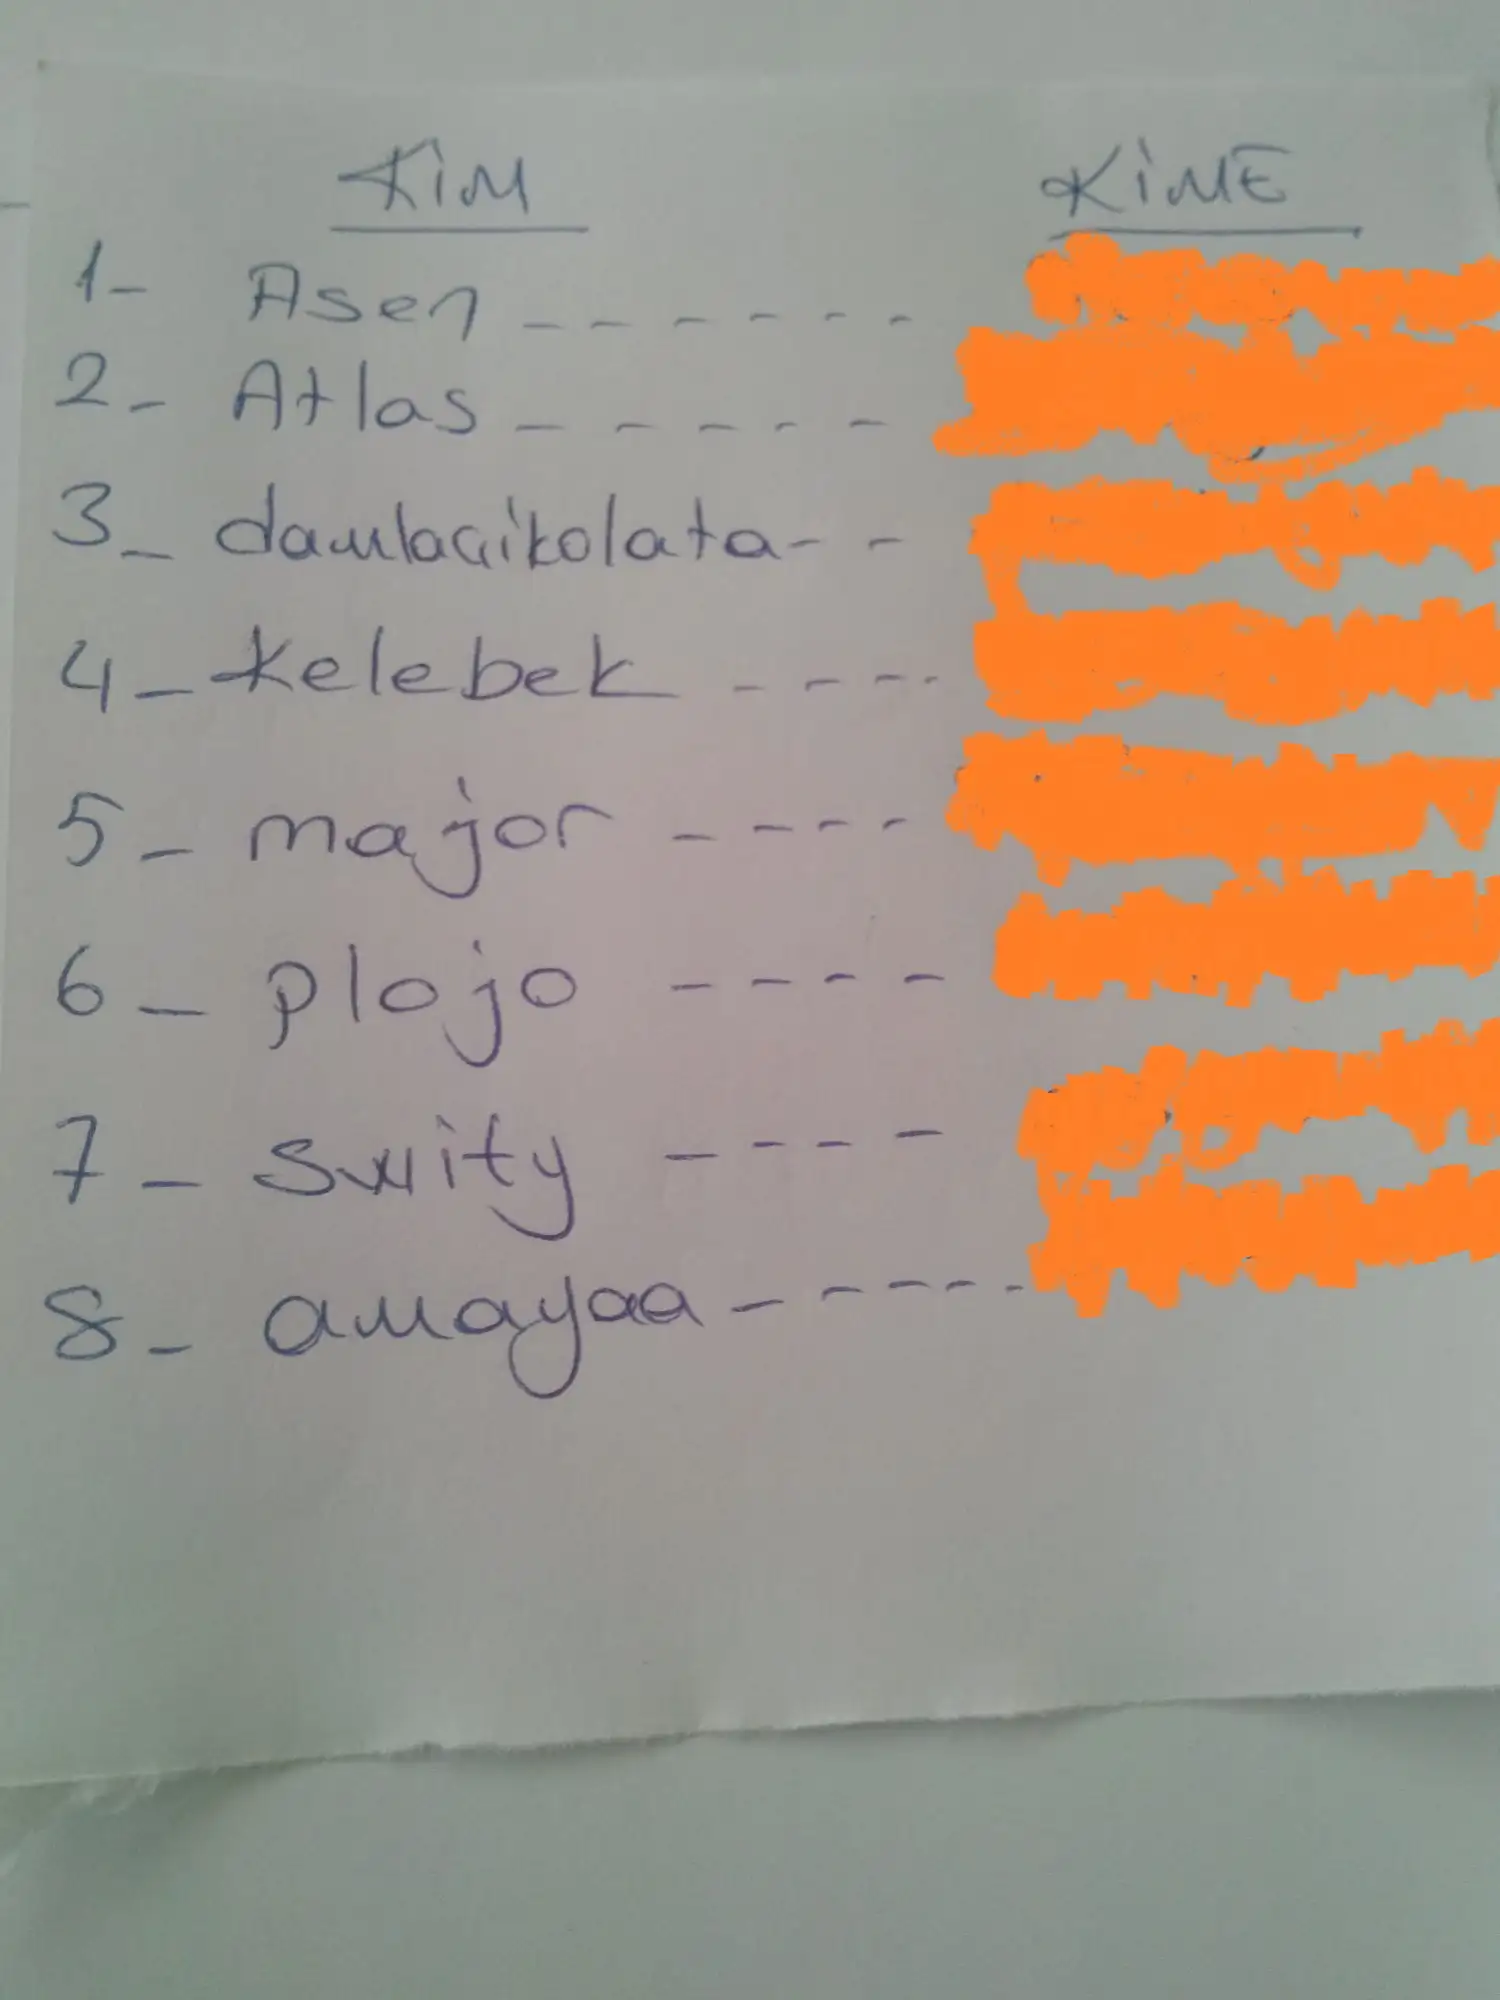 KİM KİME
1- Asen - - - - - -
2- Atlas - - - - -
3- damlacikolata - -
4- kelebek - - - -
5- major - - - -
6- plojo - - - -
7- swity - - - -
8- amayaa - - - - -